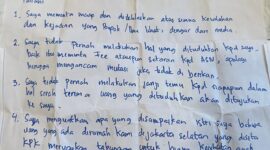 1. Saya memohon maaf dan disebabkan atas semua kesalahan
dan kejadian yang Bapak / Ibu lihat, dengar dari media
2. Saya tidak pernah melakukan hal yang dituduhkan kpd saya,
baik dia meminta Fee ataupun setoran kpd BSN, apalagi
hingga mengancam mutasi jika tidak di berikan.
3. Saya tidak pernah melakukan janji temu kpd siapapun dalam
hal serah terima uang yang dituduhkan akan ditujukan
ke saya.
4. Saya menguatkan apa yang disampaikan Istri saya bahwa
uang yang ada dirumah kami di Jakarta selatan yang disita
KPK merupakan